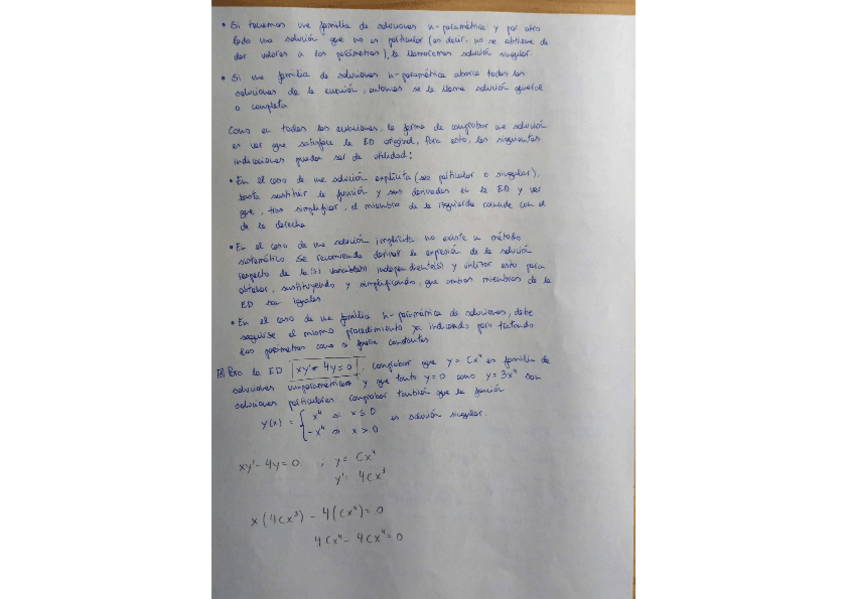 • Si tenemos una familia de soluciones n-paramétrica y por otro
lado una solución que no es particular (es decir, no se obtiene de
dar valores a los parámetros), la llamaremos solución singular.
• Si una familia de soluciones n-paramétrica abarca todas las
soluciones de la ecuación, entonces se la llama solución general
o completa
Como en todas las ecuaciones, la forma de comprobar una solución
es ver que satisface la ED original. Para esto, las siguientes
indicaciones pueden ser de utilidad:
• En el caso de una solución explícita (sea particular o singular),
basta sustituir la función y sus derivadas en la ED y ver
que, tras simplificar, el miembro de la izquierda coincide con el
de la derecha
• En el caso de una solución implícita no existe un método
sistemático. Se recomienda derivar la expresión de la solución
respecto de la(s) variable(s) independiente(s) y utilizar esto para
obtener, sustituyendo y simplificando, que ambos miembros de la
ED son iguales
• En el caso de una familia n-paramétrica de soluciones, debe
seguirse el mismo procedimiento ya indicado pero tratando
los parámetros como si fueran constantes
Para la ED xy' - 4y = 0, comprobar que y = Cx⁴ es familia de
soluciones uniparamétrica y que tanto y=0 como y=3x⁴ son
soluciones particulares comprobar también que la función
y(x) = { x⁴ si x ≤ 0
-x⁴ si x > 0 es solución singular.
xy' - 4y = 0 ; y = Cx⁴
y' = 4Cx³
x(4Cx³) - 4(Cx⁴) = 0
4Cx⁴ - 4Cx⁴ = 0